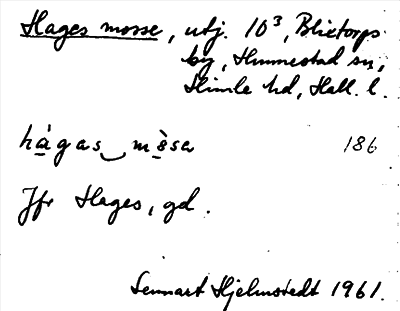 Hages mosse, utj. 10³, Blixtorps
by, Hunnestad sn,
Himle hd, Hall. l.
hàgas‿mòsa 186
Jfr Hages, gd.
Lennart Hjelmstedt 1961.